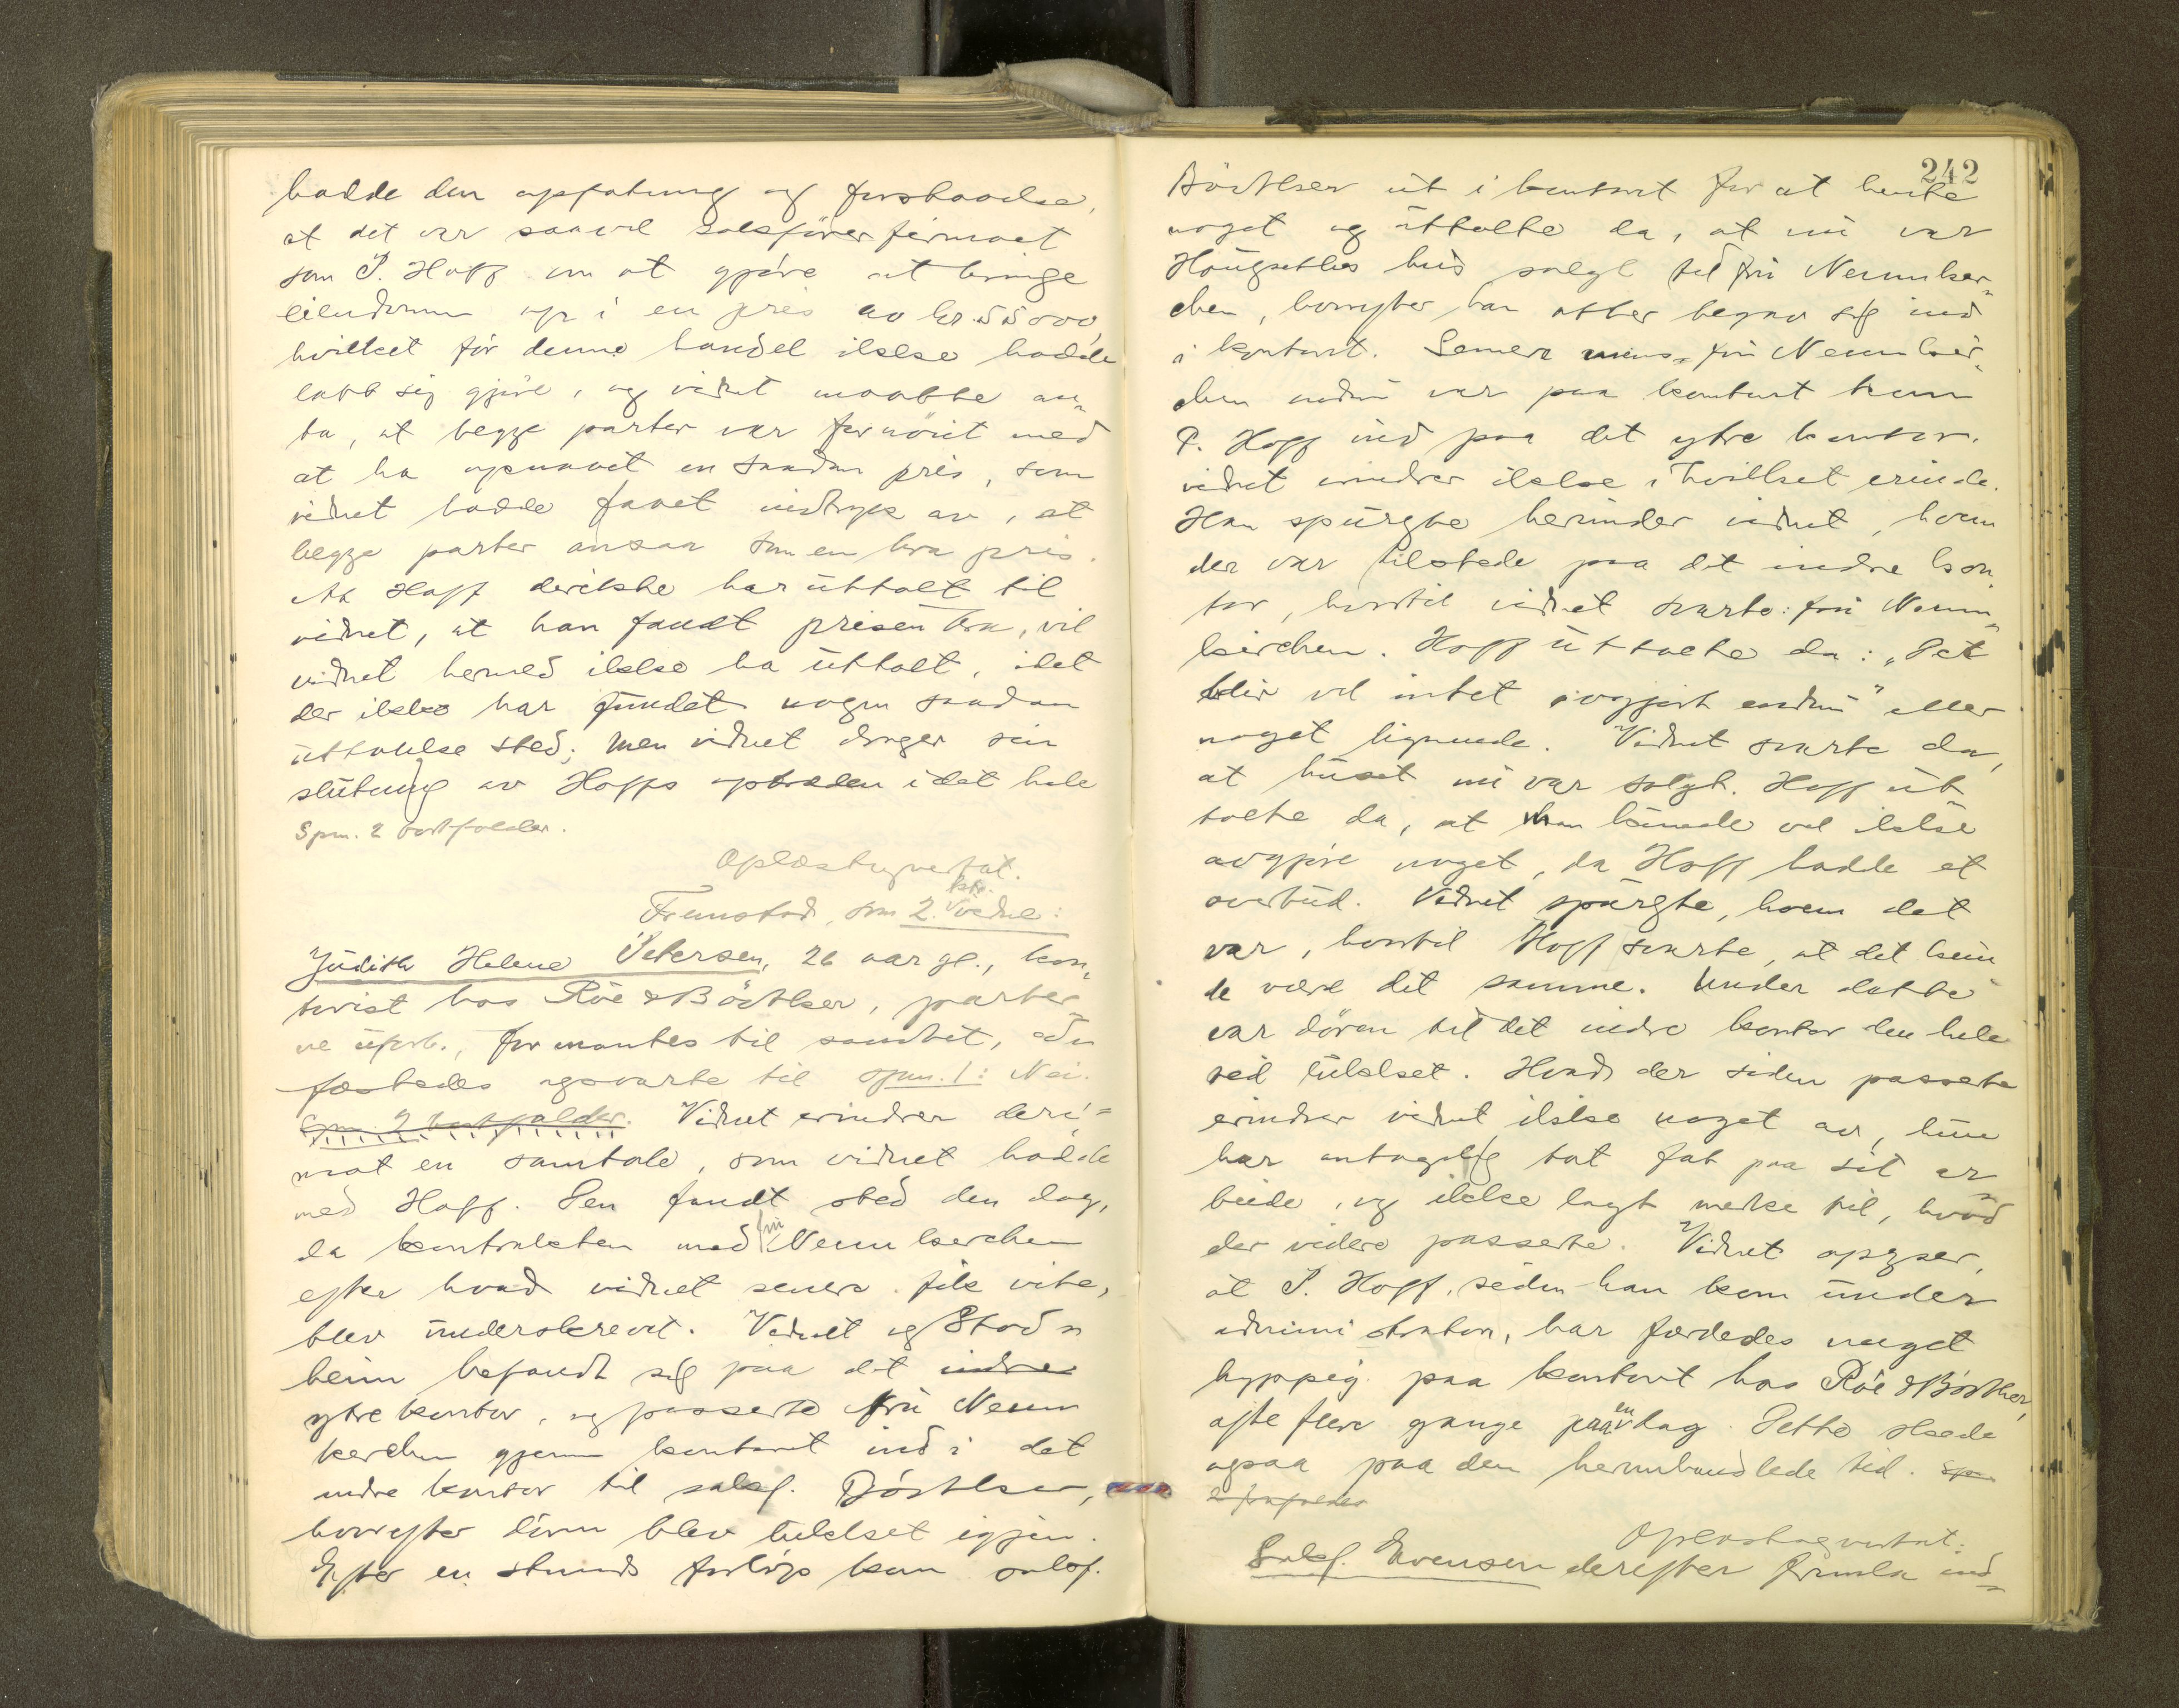 hadde den opfatning og forstaaelse,
at det var saavel saksförerfirmaet
som P. Hoff om at gjöre at bringe
eiendommen op i en pris av kr. 55000,
hvilket för denne handel ikke hadde
latt sig gjöre, og vidnet maatte an-
ta, at begge parter var fornöiet med
at ha opnaaet en saadan pris, som
vidnet hadde faaet indtryk av, at
begge parter ansaa som en bra pris.
At Hoff direkte har uttalt til
vidnet, at han fandt prisen bra, vil
vidnet hermed ikke ha uttalt, idet
der ikke har fundet nogen saadan
uttalelse sted; men vidnet drager sin
slutning av Hoffs optræden i det hele
Spm. 2 bortfalder.
Oplæst og vedtat.
Fremstod som 2. vidne:
Judith Helene Petersen, 26 aar gl., kon-
torist hos Röe & Böckler, parter-
ne uforb., formantes til sandhet, ed-
fæstedes og svarte til spm. 1: Nei.
Spm. 2 bortfalder. Vidnet erindrer deri-
mot en samtale, som vidnet hadde
med Hoff. Den fandt sted den dag,
da kontrakten med fru Neumkerchen
efter hvad vidnet senere fik vite,
blev underskrevet. Vidnet og Stods-
heim befandt sig paa det indre
ytre kontor, og passerte fru Neum
kerchen gjennem kontoret ind i det
indre kontor til saksf. Böckler,
hvorefter dören blev lukket igjen.
Efter en stunds forlöp kom saksf.
242
Böckler ut i kontoret for at hente
noget og uttalte da, at nu var
Haugsethes hus solgt til fru Neumker-
chen, hvorefter han atter begav sig ind
i kontoret. Senere mens fru Neumker-
chen endnu var paa kontoret kom
P. Hoff ind paa det ytre kontor.
vidnet erindrer ikke i hvilket erinde.
Han spurgte herunder vidnet, hvem
der var tilstede paa det indre kon-
tor, hvortil vidnet svarte: fru Neum-
kerchen. Hoff uttalte da: „Det
blir vel intet avgjort endnu" eller
noget lignende. Vidnet svarte da,
at huset nu var solgt. Hoff ut
talte da, at man kunde vel ikke
avgjöre noget, da Hoff hadde et
overbud. Vidnet spurgte, hvem det
var, hvortil Hoff svarte, at det kun
de være det samme. Under dette
var dören til det indre kontor den hele
tid lukket. Hvad der siden passerte
erindrer vidnet ikke noget av, hun
har antagelig tat fat paa sit ar-
beide, og ikke lagt merke til, hvad
der videre passerte. Vidnet oplyser,
at P. Hoff, siden han kom under
administration, har færdedes meget
hyppig paa kontoret hos Röe & Böckler,
ofte flere gange paa en dag. Dette skede
ogsaa paa den heromhandlede tid. Spm
2 frafaldes
Oplæst og vedtat.
Saksf. Evensen derefter fremla ind-